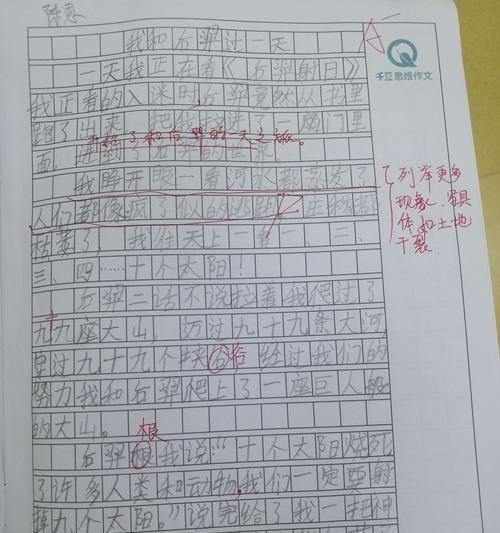 陈恩
A-
我和后羿过一天
千豆思维作文
一天我正在看《后羿射日》
我正看的入迷时,后羿竟然从书里
跑了出来,把我拉进了一扇门里
开始了和后羿的一天之旅。
面,进到了后羿的世界。
我睁开眼一看河水都蒸发了
列举更多
人们都像疯了似的逃跑,庄稼都
现象,更具
枯萎了,我往天上一看一、二、
体如土地
干裂
三、四……十个太阳!
后羿二话不说拉着我爬过了
九十九座大山,迈过九十九条大河
穿过九十九个峡谷 经过我们的
努力我和后羿爬上了一座巨人般
的大山。
根
后羿跟我说“十个太阳烧死
了许多人类和动物,我们一定要射
掉九个太阳。”说完给了我一把神